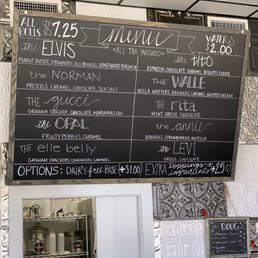 ALL ROLLS $7.25
menu
WATERS $2.00
ALL TAX INCLUDED
the ELVIS
PEANUT BUTTER, STRAWBERRY JELLY, BANANAS, HOMEMADE BACON
the OTTO
ESPRESSO, CHOCOLATE CARAMEL, BISCOTTI COOKIE
the NORMAN
PRETZELS, CARAMEL, CHOCOLATE, SEA SALT
The WALLE
NILLA WAFFERS, BANANAS, CARAMEL, WHIPPED CREAM
THE gucci
GRAHAM CRACKER, CHOCOLATE, MARSHMALLOW
the rita
MINT OREOS, CHOCOLATE
THE OPAL
FRUITY PEBBLES, CARAMEL
the annie
BANANAS, STRAWBERRIES, NUTELLA
the elle belly
GRAHAM CRACKERS, CINNAMON, CARAMEL
the LEVI
OREOS, CHOCOLATE
OPTIONS: DAIRY free BASE +$1.00
EXTRA toppings or ingredients
DOUG